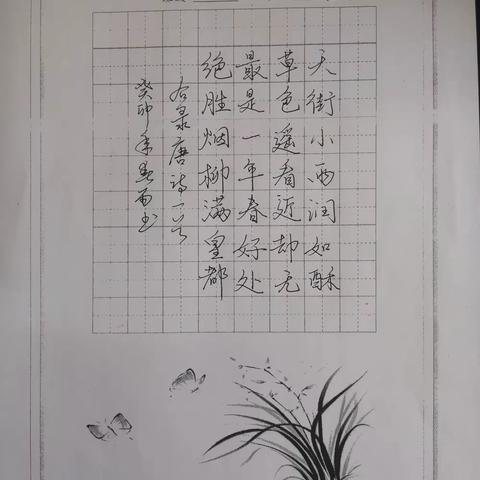 天街小雨润如酥
草色遥看近却无
最是一年春好处
绝胜烟柳满皇都
右录唐诗一首
癸卯年春雨书